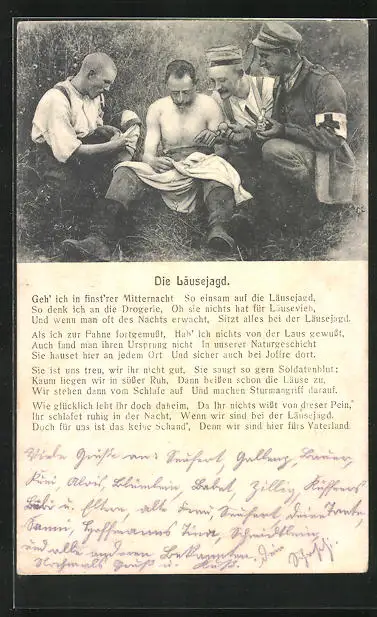 Die Läusejagd.
Geh' ich in finst'rer Mitternacht So einsam auf die Läusejagd,
So denk ich an die Drogerie, Ob sie nichts hat für Läusevieh,
Und wenn man oft des Nachts erwacht, Sitzt alles bei der Läusejagd.
Als ich zur Fahne fortgemußt, Hab' ich nichts von der Laus gewußt,
Auch fand man ihren Ursprung nicht In unserer Naturgeschicht
Sie hauset hier an jedem Ort Und sicher auch bei Joffre dort.
Sie ist uns treu, wir ihr nicht gut, Sie saugt so gern Soldatenblut:
Kaum liegen wir in süßer Ruh, Dann beißen schon die Läuse zu,
Wir stehen dann vom Schlafe auf Und machen Sturmangriff darauf.
Wie glücklich lebt Ihr doch daheim, Da Ihr nichts wißt von dieser Pein,
Ihr schlafet ruhig in der Nacht, Wenn wir sind bei der Läusejagd.
Doch für uns ist das keine Schand', Denn wir sind hier fürs Vaterland
Viele Grüße an: Seufert,
Alois, Blümlein, Babet,
u. Eltern, alte Frau Seufert, deine Tante,
Hoffmanns Tina,
und alle anderen Bekannten. Dein
Nochmals Gruß u. Kuß.